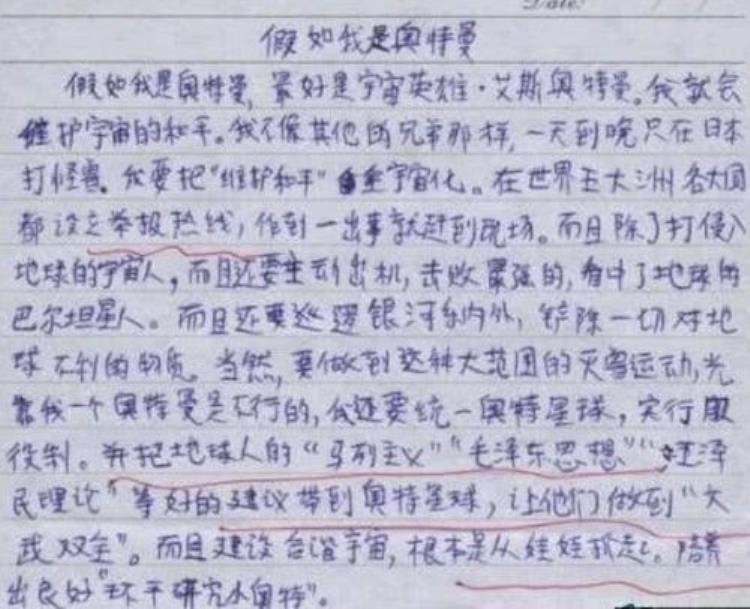 Date:
假如我是奥特曼
假如我是奥特曼,最好是宇宙英雄·艾斯奥特曼。我就会
维护宇宙的和平。我不像其他的兄弟那样,一天到晚只在日本
打怪兽。我要把“维护和平”宇宙化。在世界五大洲各大国
都设立举报热线,作到一出事就赶到现场。而且除了打侵入
地球的宇宙人,而且还要主动出机,击败最强的,看中了地球的
巴尔坦星人。而且还要巡逻银河系内外,铲除一切对地
球不利的物质。当然,要做到这种大范围的灭害运动,光
靠我一个奥特曼是不行的,我还要统一奥特星球,实行服
役制。并把地球人的“马列主义”“毛泽东思想”“江泽
民理论”等好的建议带到奥特星球,让他们做到“文
武双全”。而且建设合谐宇宙,根本是从娃娃抓起。培养
出良好“环平研究小奥特”。